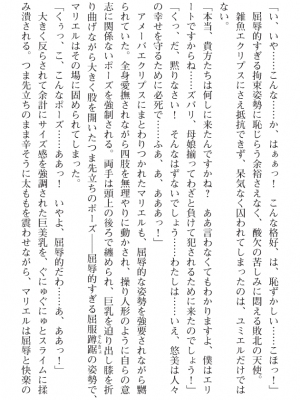 「い、いや……こんな……か、はぁぁっ！　こんな格好、は、恥ずかしい……こほっ！」
　屈辱的すぎる拘束姿勢に恥じらう余裕さえなく、酸欠の苦しみに悶える敗北の天使。
　雑魚エクリプスにさえ抵抗できず、呆気なく囚われてしまったのは、ユミエルだけでは
ない。
「本当、貴方たちは何しに来たんですかね？　ああ言わなくてもわかりますよ、僕はエリ
ートですからね。ズバリ、母娘揃ってわざと負けて犯されるために来たのでしょう！」
「くっ、だ、黙りなさい！　そんなはずないでしょう……わたしは……いえ、悠美は人々
の幸せを守るために必死で……ふぁ、あ、あああっ！」
　アメーバエクリプスにまとわりつかれたマリエルも、屈辱的な姿勢を強要されながら嬲
られていた。全身愛撫されながら四肢を無理やりに動かされ、操り人形のように自らの意
志に関係ないポーズを強制される。両手は頭上の後ろで纏められ、巨乳を迫り出し膝を折
り曲げながら大きく股を開いたつま先立ちのポーズ――屈辱的すぎる屈服蹲踞の姿勢で、
マリエルはその場に固められてしまった。
「くぅっ、こ、こんなポーズ……ああっ！　いやよ、屈辱的だわ……あ、ああっ！」
　大きく反らされて余計にサイズ感を強調された巨美乳を、ぐにゅぐにゅとスライムに揉
み潰される。つま先立ちのまま辛そうに太ももを震わせながら、マリエルは屈辱と快楽の